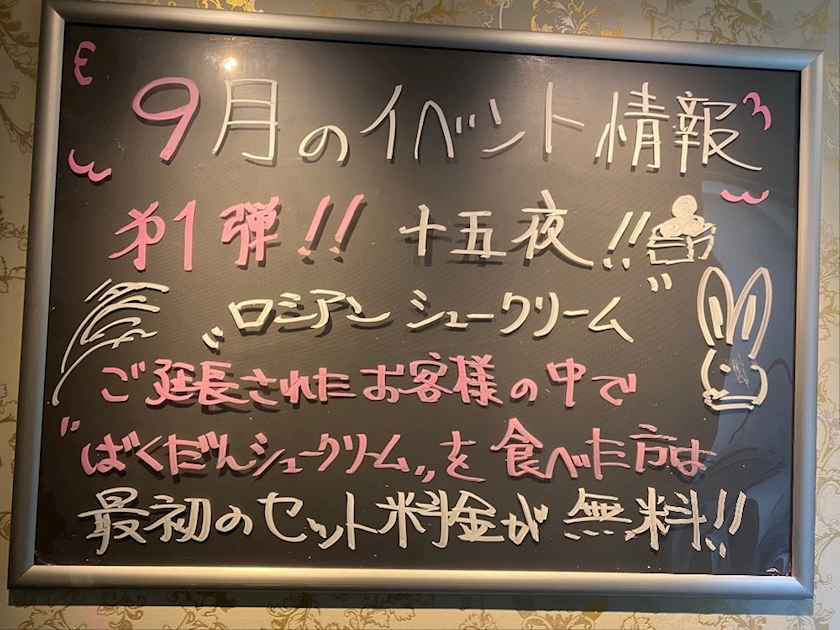 9月のイベント情報
第1弾!! 十五夜!!
"ロシアン シュークリーム"
ご延長されたお客様の中で
"ばくだんシュークリーム"を食べた方は
最初のセット料金が無料!!